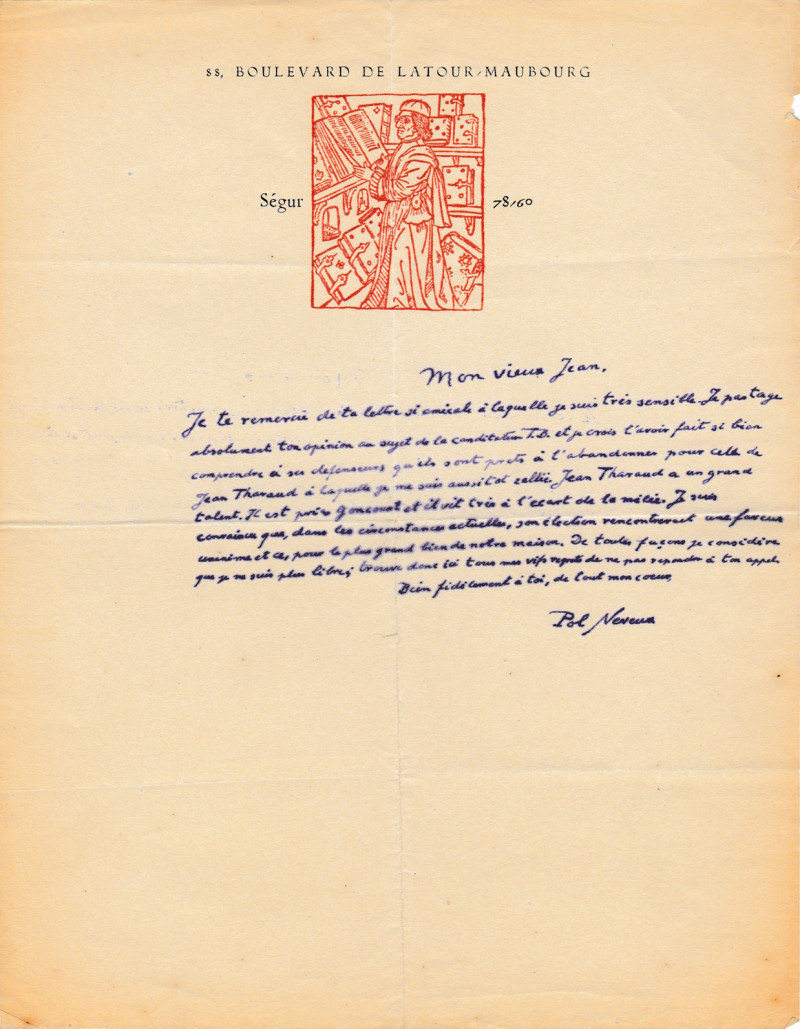 88, BOULEVARD DE LATOUR-MAUBOURG
Ségur 78-60
Mon vieux Jean,
Je te remercie de ta lettre si amicale à laquelle je suis très sensible. Je partage
absolument ton opinion au sujet de la canditature T.D. et je crois l'avoir fait si bien
comprendre à ses défenseurs qu'ils sont prêts à l'abandonner pour celle de
Jean Tharaud à laquelle je me suis aussitôt rallié. Jean Tharaud a un grand
talent. Il est prix Goncourt et il vit très à l'écart de la mêlée. Je suis
convaincu que, dans les circonstances actuelles, son élection rencontrerait une faveur
unanime et ce, pour le plus grand bien de notre maison. De toutes façons je considère
que je ne suis plus libre; trouve donc ici tous mes vifs regrets de ne pas repondre à ton appel.
Bien fidèlement à toi, de tout mon coeur,
Pol Neveux